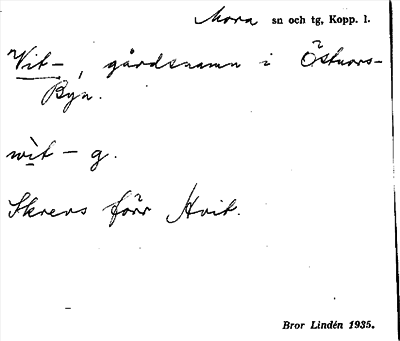 Mora sn och tg, Kopp. l.
Vit-, gårdsnamn i Östnors-
Byn.
wìt - g.
Skrevs förr Hvit.
Bror Lindén 1935.